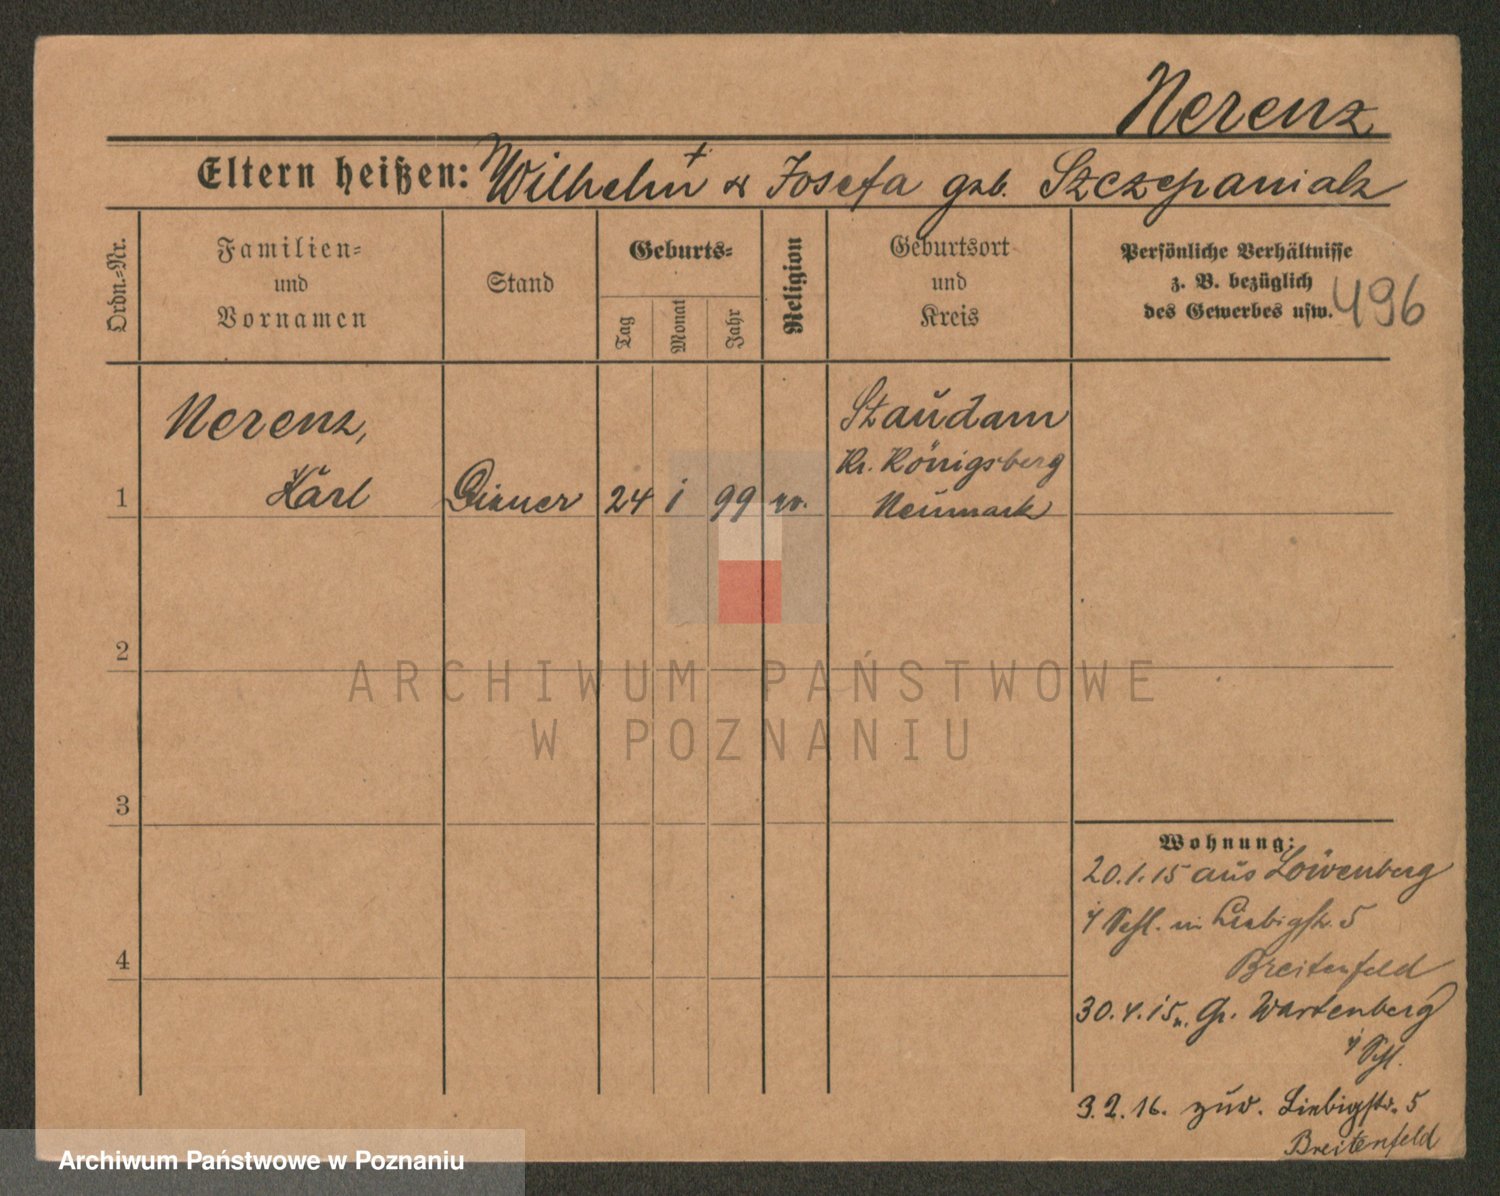 Nerenz
Eltern heißen: Wilhelm + & Josefa geb. Szczepaniak
Ordn.-Nr.
Familien- und Vornamen
Stand
Geburts-
Tag
Monat
Jahr
Religion
Geburtsort und Kreis
Persönliche Verhältnisse
z. B. bezüglich
des Gewerbes usw.
496
Nerenz,
Karl
1
Diener
24
1
99
ev.
Staudam
Kr. Königsberg
Neumark
2
3
4
Wohnung:
20.1.15 aus Löwenberg
i/Schl. in Liebigstr. 5
Breitenfeld
30.4.15 n. Gr. Wartenberg
i/Schl.
3.2.16. zur. Liebigstr. 5
Breitenfeld
ARCHIWUM PAŃSTWOWE
W POZNANIU
Archiwum Państwowe w Poznaniu